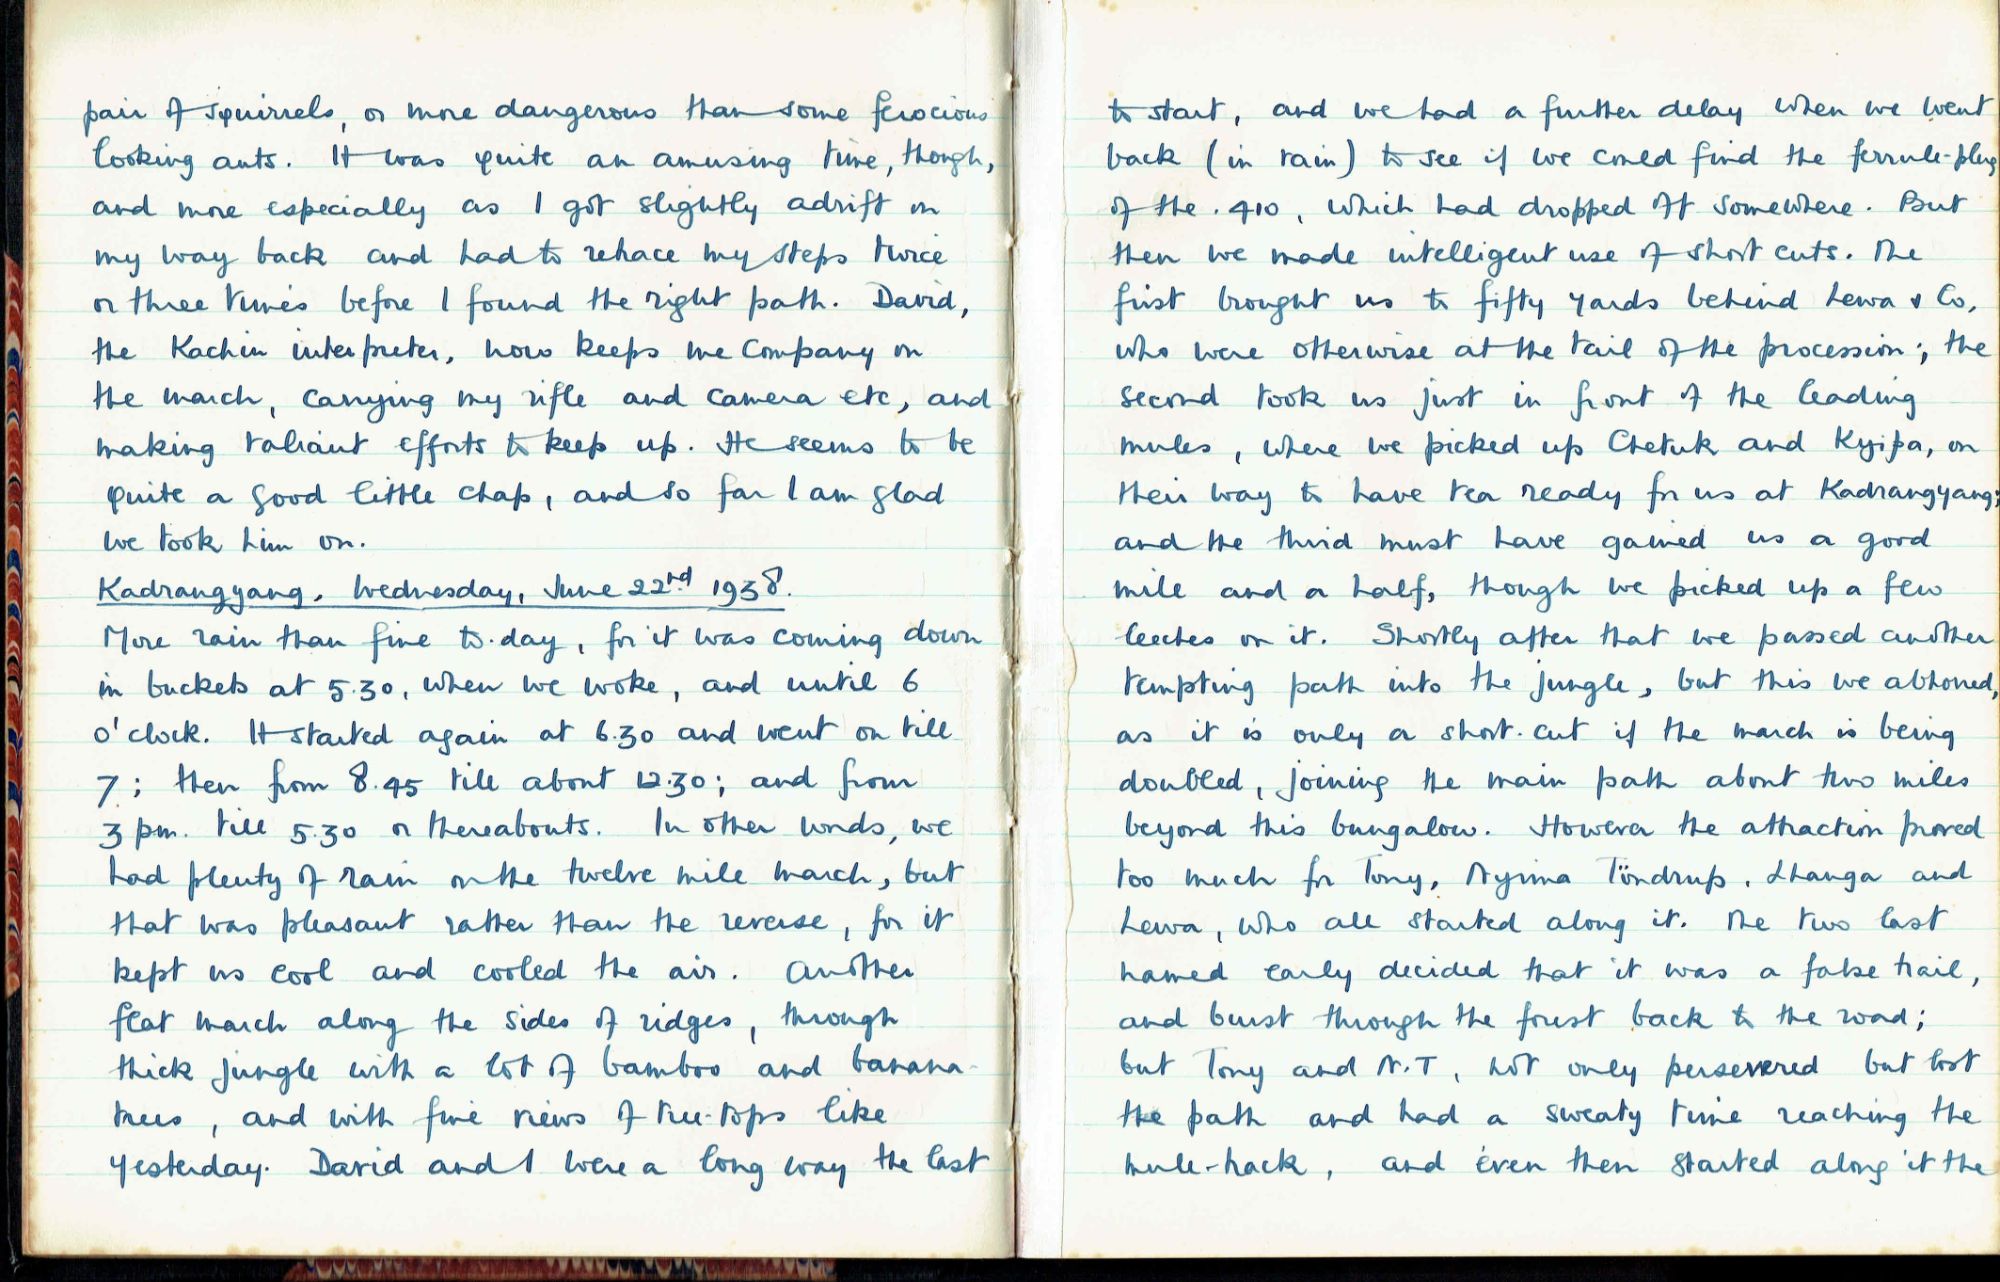 pair of squirrels, or more dangerous than some ferocious
looking ants. It was quite an amusing time, though,
and more especially as I got slightly adrift on
my way back and had to retrace my steps twice
or three times before I found the right path. David,
the Kachin interpreter, now keeps me company on
the march, carrying my rifle and camera etc, and
making valiant efforts to keep up. He seems to be
quite a good little chap, and so far I am glad
we took him on.
Kadrangyang, Wednesday, June 22nd 1938.
More rain than fine to-day, for it was coming down
in buckets at 5.30, when we woke, and until 6
o'clock. It started again at 6.30 and went on till
7; then from 8.45 till about 12.30; and from
3 pm. till 5.30 or thereabouts. In other words, we
had plenty of rain on the twelve mile march, but
that was pleasant rather than the reverse, for it
kept us cool and cooled the air. Another
flat march along the sides of ridges, through
thick jungle with a lot of bamboo and banana-
trees, and with fine views of tree-tops like
yesterday. David and I were a long way the last
to start, and we had a further delay when we went
back (in rain) to see if we could find the ferrule-plug
of the .410, which had dropped off somewhere. But
then we made intelligent use of short cuts. The
first brought us to fifty yards behind Lewa & Co,
who were otherwise at the tail of the procession; the
second took us just in front of the leading
mules, where we picked up Chetuk and Kyipa, on
their way to have tea ready for us at Kadrangyang;
and the third must have gained us a good
mile and a half, though we picked up a few
leeches on it. Shortly after that we passed another
tempting path into the jungle, but this we abhorred,
as it is only a short-cut if the march is being
doubled, joining the main path about two miles
beyond this bungalow. However the attraction proved
too much for Tony, Nyima Töndrup, Lhanga and
Lewa, who all started along it. The two last
named early decided that it was a false trail,
and burst through the forest back to the road;
but Tony and N.T, not only persevered but lost
the path and had a sweaty time reaching the
mule-track, and even then started along it the